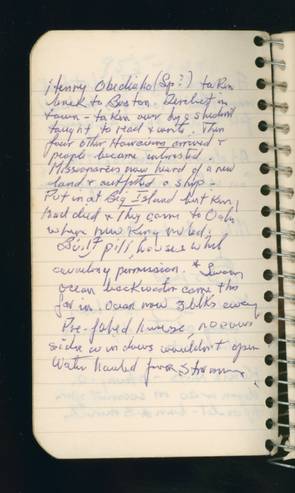 Henry Obediaho (Sp?) taken
back to Boston. Derelict in
town - taken over by a student
taught to read & write. Then
four other Hawaiians arrived &
people became interested.
Missionaries now heard of a new
land & outfitted a ship -
Put in at Big Island but King
had died & they came to Oahu
where new King ruled.
Built pill houses whil
awaiting permission. * Swam
ocean backwater came this
far in. Ocean now 3 blks away
Pre-fabed house no
side windows wouldn't open
Water hauled from Stream